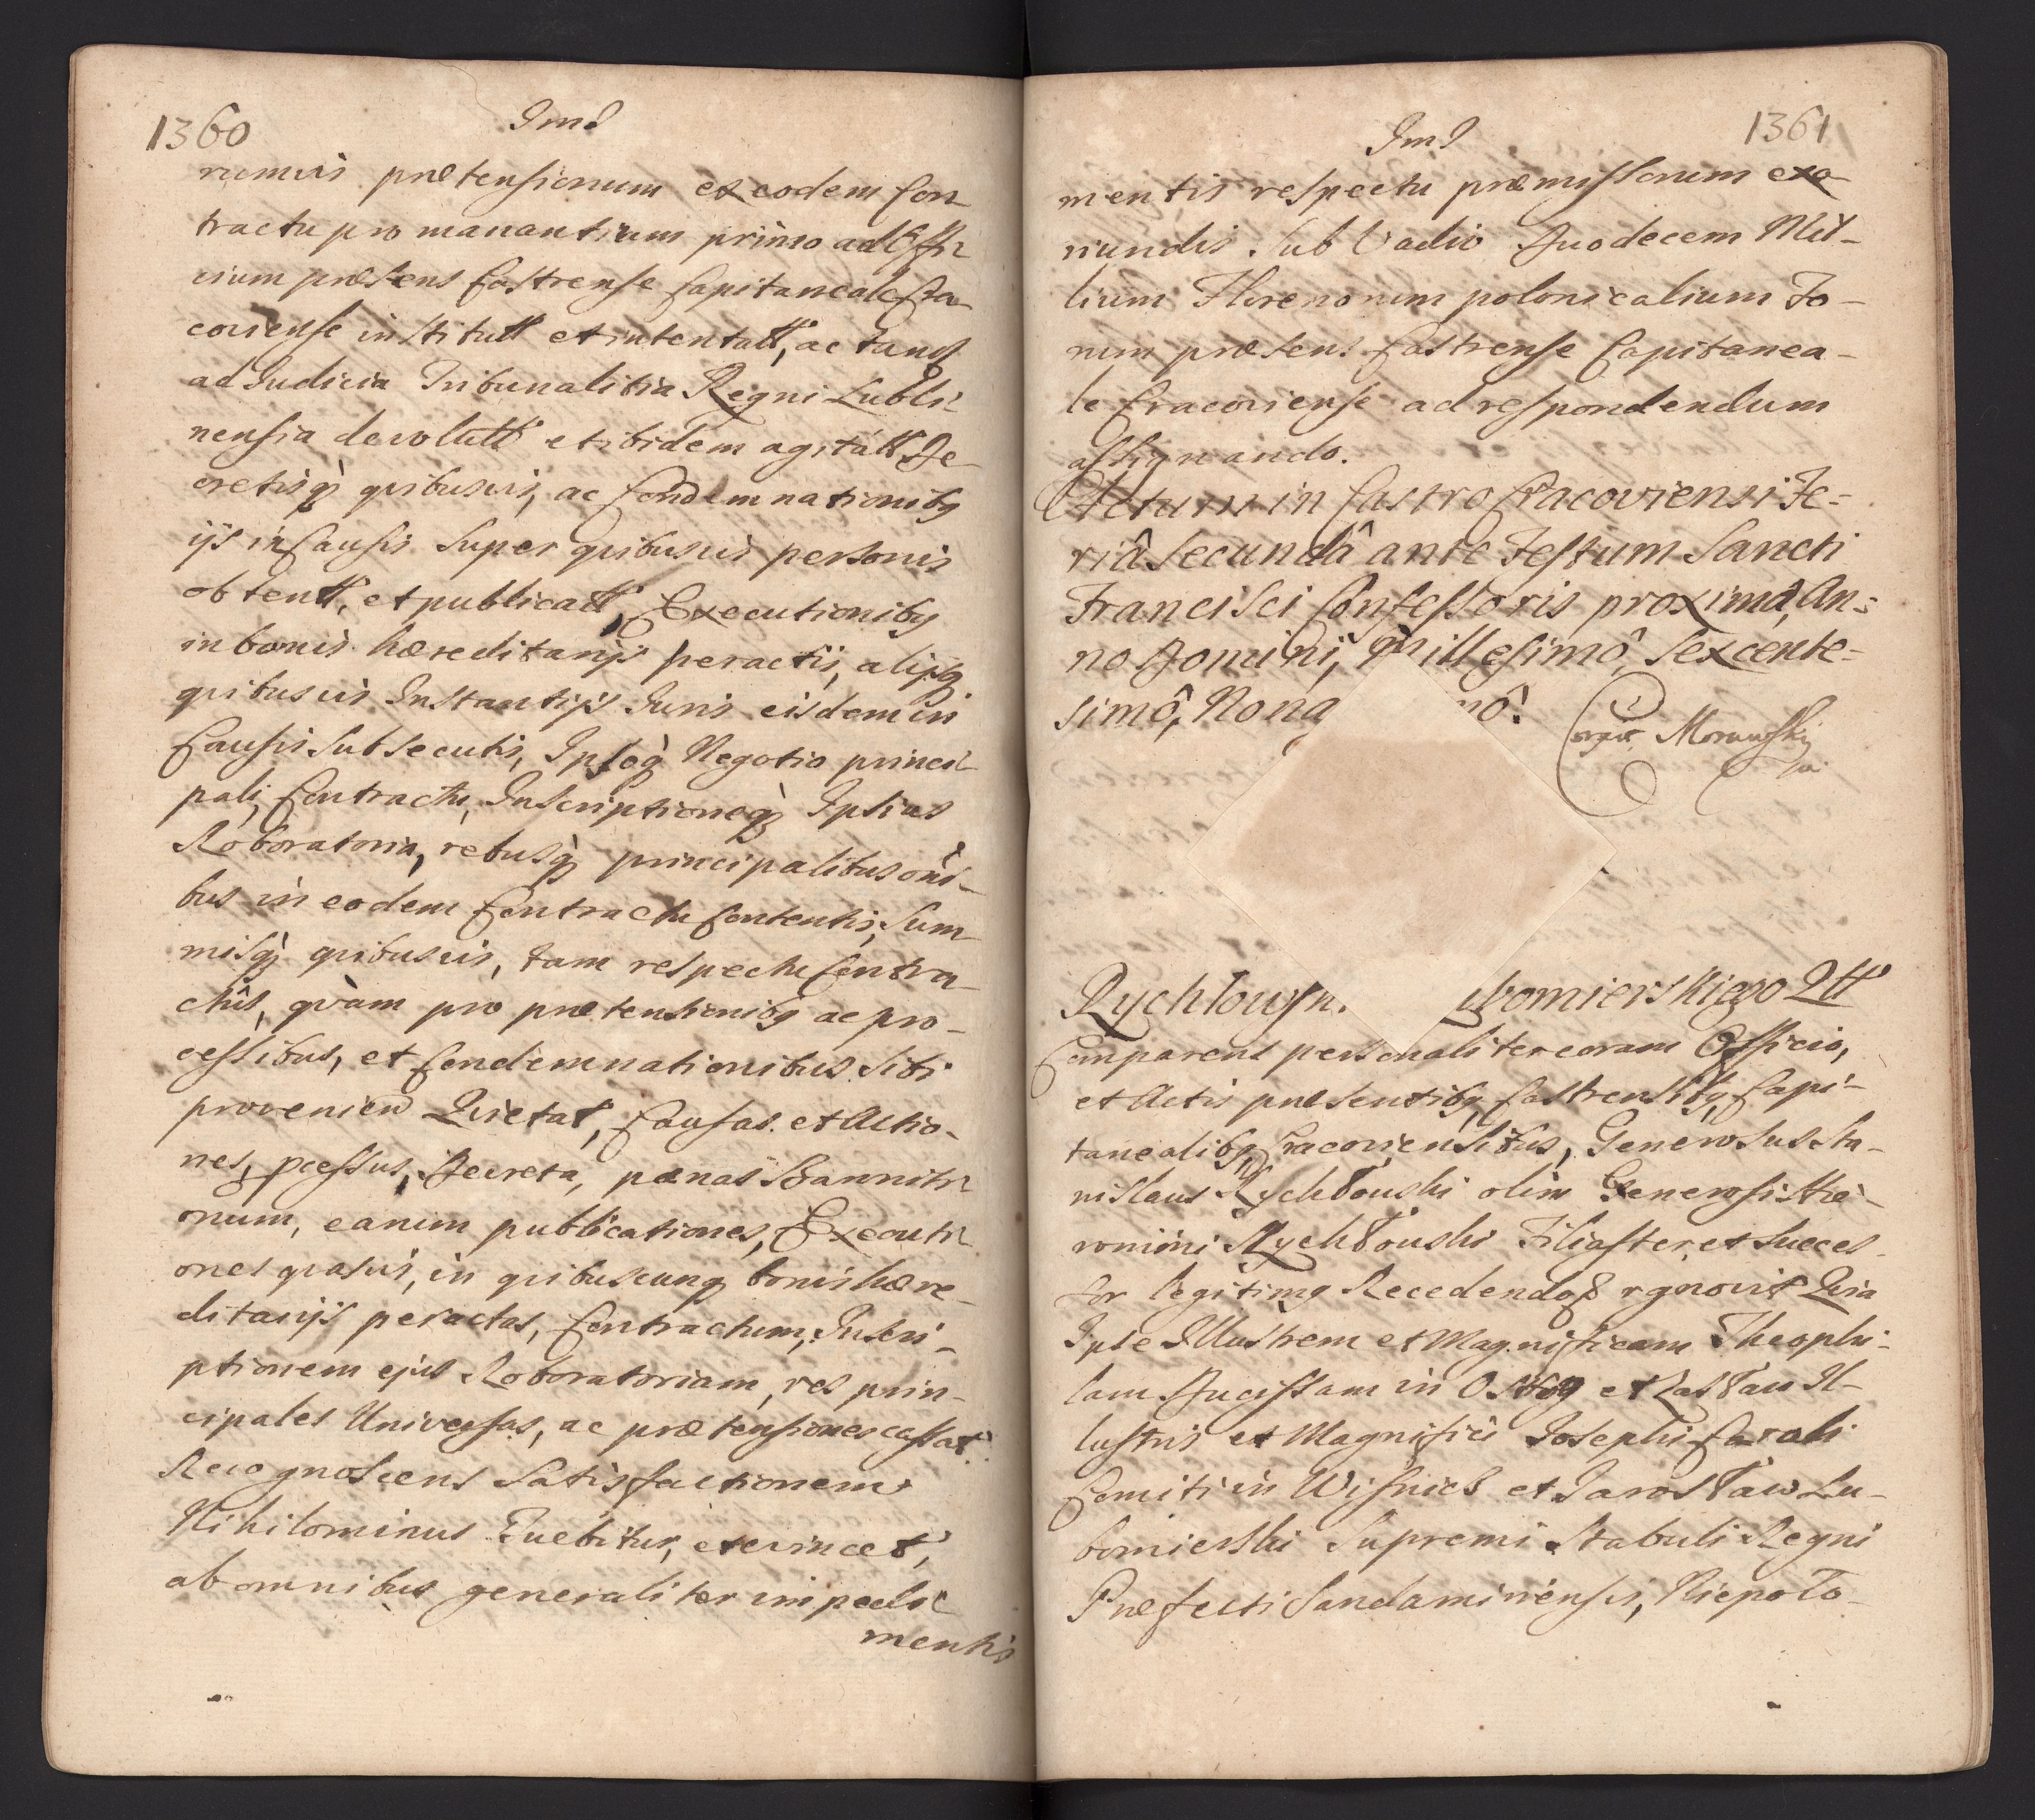 1360
Imd
rumvis prætensionum ex eodem Con-
tractu pro manantium primo ad Offi-
cium præsens Castrense Capitaneale Cra-
coviense institutt et intentatt, ac tand
ad Judicia Tribunalitia Regni Lubli-
nensia devolutt et ibidem agitatt De-
cretisq quibusvis, ac Condemnationibq
ijs in Causis super quibusvis personis
obtentt, et publicatt, Executionibq
in bonis hæreditarijs peractis, alijsq
quibusvis Instantijs Juris eisdem in
Causis subsecutis, Ipsoq Negotio princi-
pali, Contractu, Inscriptioneq Ipsius
Roboratoria, rebusq principalibus oni-
bus in eodem Contractu Contentis, Sum-
misq quibusvis, tam respectu Contra-
ctûs, qvàm pro prætensionibq ac pro-
cessibus, et Condemnationibus sibi
provenien Qvietat, Causas et Actio-
nes, pcessus, Decreta, pænas Banniti-
onum, earum publicationes, Executi-
ones qvasvis, in quibuscunq bonis hære-
ditarijs peractas, Contractum, Inscri-
ptionem ejus Roboratoriam, res prin-
cipales Universas, ac prætensiones cassat
Recognoscens Satisfactionem
Nihilominus Tuebitur, et evincet,
ab omnibus generaliter impedi-
mentis
1361
Imd
mentis respectu præmissorum exo-
riundis. Sub Vadio Duodecem Mil-
lium Florenorum polonicalium Fo-
rum præsens Castrense Capitanea-
le Cracoviense ad respondendum
assignando.
Actum in Castro Cracoviensi Fe-
riâ Secundâ ante Festum Sancti
Francisci Confessoris proximâ, An-
no Domini, Millesimô, Sexcente-
simô, Nona mô.
Morawski
Rychłowsn. ubomierskiego Qtt
Comparens personaliter coram Officio,
et Actis præsentibq Castrensibq, Capi-
tanealibq, Cracoviensibus, Generosus Sta-
nislaus Rychłouski olim Generosi Hie-
ronimi Rychłouski Filiaster, et Succes-
sor legitimq Recedendoq rgnovit Qvia
Ipse Illustrem et Magnificam Theophi-
lam Ducissam in Ostrog et Zasław Il-
lustris et Magnifici Josephi Caroli
Comiti in Wisnicz et Jarosław Lu-
bomierski Supremi Stabuli Regni
Præfecti Sandamiriensis, Niepoło-